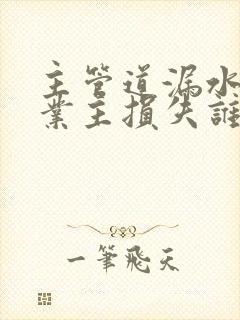 主管道漏水
業主損失誰
一筆飛天